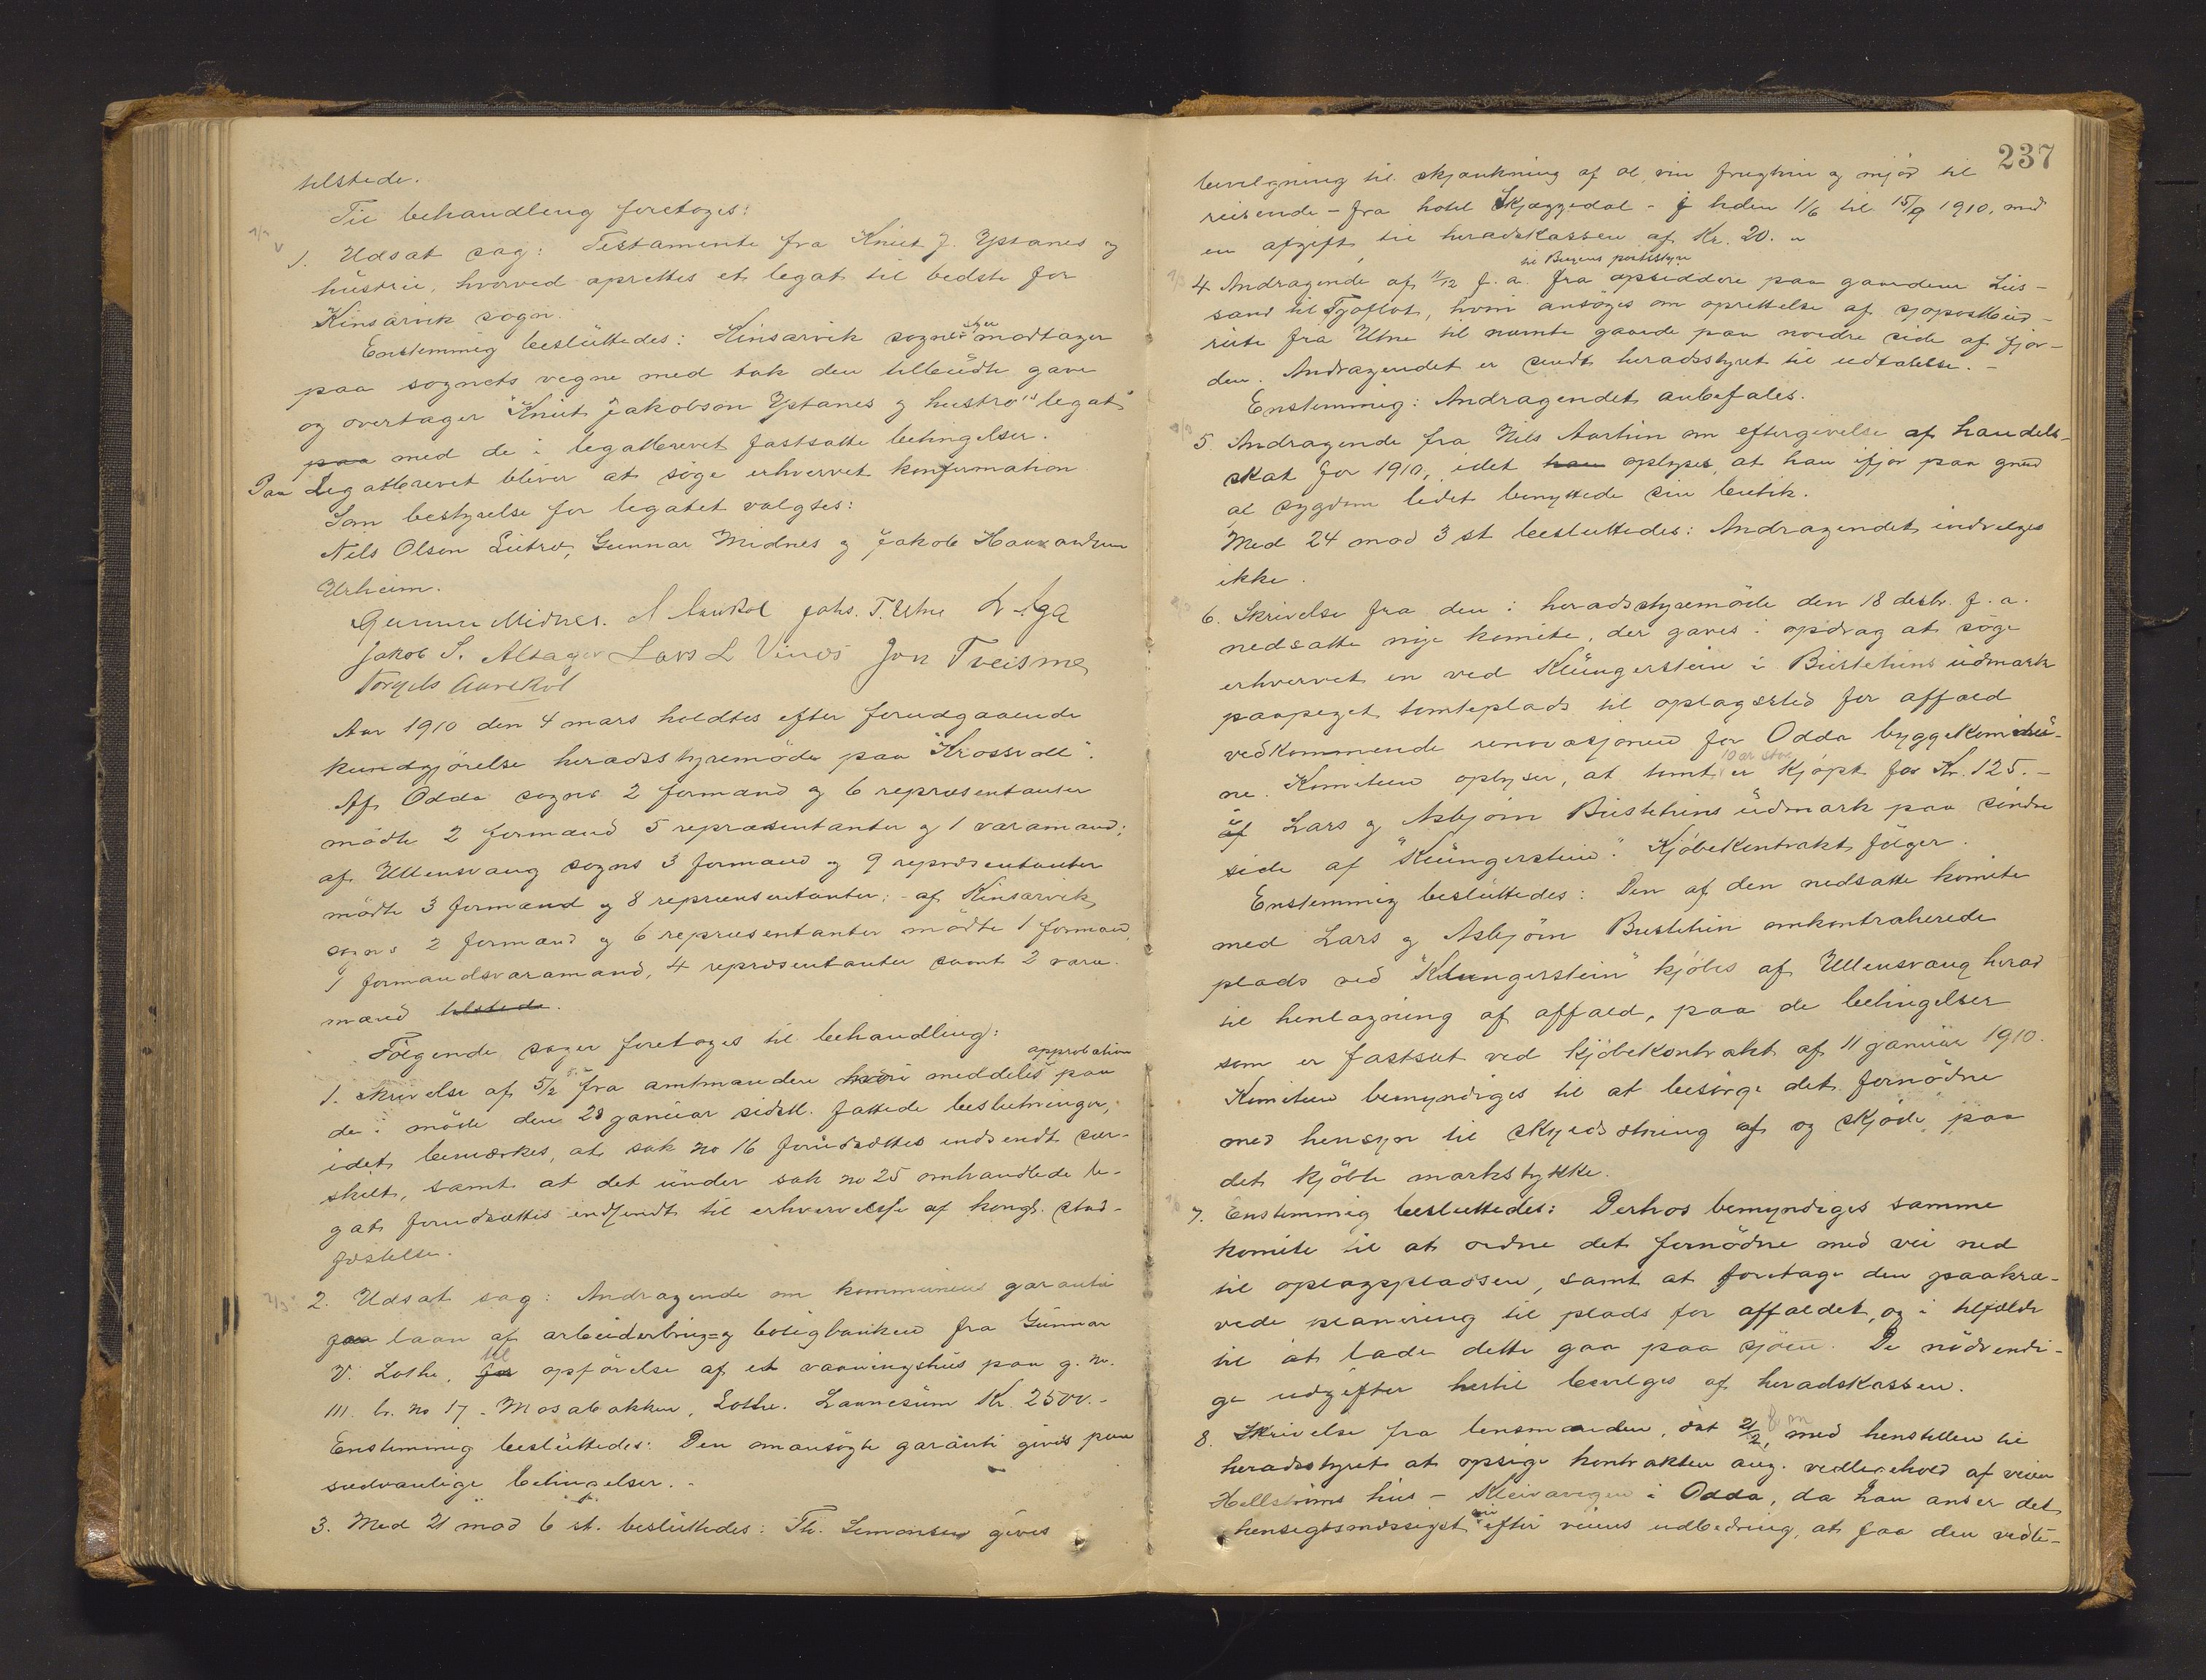 tilstede.
Til behandling foretoges:
1. Udsat sag: Testamente fra Knut J. Ystanes og
hustru, hvorved oprettes et legat til bedste for
Kinsarvik sogn.
Enstemmig besluttedes: Kinsarvik sognestyr modtager
paa sognets vegne med tak den tilbudte gave
og overtager "Knut Jakobson Ystanes og hustros legat"
paa med de i legatbrevet fastsatte betingelser.
Paa Legatbrevet bliver at søge erhvervet konfirmation
Som bestyrelse for legatet valgtes:
Nils Olsen Lutro, Gunnar Midnes og Jakob
Urheim.
Gunnar Midnes. Johs. T. Utne L Aga
Jakob S. Alsager Lars L Vines Jon Tveisme
Torgils Aurekol
Aar 1910 den 4 mars holdtes efter forudgaaende
kundgjörelse heradsstyremöde paa "Krossvoll".
Af Odda sogns 2 formænd og 6 repræsentanter
mödte 2 formænd 5 repræsentanter og 1 varamand;
af Ullensvang sogns 3 formænd og 9 repræsentanter
mödte 3 formænd og 8 repræsentanter; - af Kinsarvik
sogns 2 formænd og 6 repræsentanter mödte 1 formand,
1 formandsvaramand, 4 repræsentanter samt 2 vara-
mænd tilstede.
Fölgende sager foretoges til behandling:
1. Skrivelse af 5/2 fra amtmanden hvori meddeles approbation paa
de i möde den 28 januar sidstl. fattede beslutninger,
idet bemærkes, at sak no 16 forudsættes indsendt sær-
skilt, samt at det under sak no 25 omhandlede le-
gat forudsættes indsendt til erhvervelse af kongl. stad-
fæstelse.
2. Udsat sag: Andragende om kommunens garanti
for laan af arbeiderbrug- og boligbanken fra Gunnar
V. Lothe, for til opförelse af et vaaningshus paa g. nr.
111. br. no 17 - Mosabakken, Lothe. Laanesum Kr. 2500.-
Enstemmig besluttedes: Den omansögte garanti gives paa
sedvanlige betingelser.-
3. Med 21 mod 6 st. besluttedes: Th. Simonsen gives
237
bevilgning til skjænkning af öl, vin frugtvin og mjöd til
reisende - fra hotel Skjæggedal - i tiden 1/6 til 15/9 1910, med
en afgift til heradskassen af Kr. 20. "
4 Andragende af 11/12 f. a. til Bergens postbestyr fra opsiddere paa gaardene Lus-
sand til Tjoflot, hvori ansöges om oprettelse af sjöpostbud-
rute fra Utne til nævnte gaarde paa nordre side af fjor-
den. Andragendet er sendt heradsstyret til udtalelse. -
Enstemmig: Andragendet anbefales.
5. Andragende fra Nils Aarhun om eftergivelse af handels-
skat for 1910, idet han oplyses, at han ifjor paa grund
af sygdom lidet benyttede sin butik.
Med 24 mod 3 st besluttedes: Andragendet indvilges
ikke.
6. Skrivelse fra den i heradsstyremöde den 18 desbr. f. a.
nedsatte nye komite, der gaves i opdrag at söge
erhvervet en ved Klungerstein i Bustetuns udmark
paapeget tomteplads til oplagssted for affald
vedkommende renovasjonen for Odda byggekommu-
ne. Komiteen oplyser, at tomt 10 ar stor er kjöpt for Kr. 125.-
af Lars og Asbjörn Bustetuns udmark paa söndre
side af "Klungerstein". Kjöbekontrakt fölger.
Enstemmig besluttedes: Den af den nedsatte komite
med Lars og Asbjörn Bustetun omkontraherede
plads ved "Klungerstein" kjöbes af Ullensvang herad
til henlægning af affald, paa de betingelser
som er fastsat ved kjöbekontrakt af 11 januar 1910.
Komiteen bemyndiges til at besörge det fornödne
med hensyn til skyldsætning af og skjöde paa
det kjöbte markstykke.
7. Enstemmig besluttedes: Derhos bemyndiges samme
komite til at ordne det fornödne med vei ned
til oplagspladsen, samt at foretage den paakræ-
vede planering til plads for affaldet, og i tilfælde
til at lade dette gaa paa sjöen. De nödvendi-
ge udgifter hertil bevilges af heradskassen.
8. Skrivelse fra lensmanden, dat 21/2, med henstillen til
heradsstyret at opsige kontrakten ang. vedligehold af veien
Hellströms hus - Kleivavegen i Odda, da han anser det
hensigtsmæssigst efter veiens udbedring, at faa den vedli-